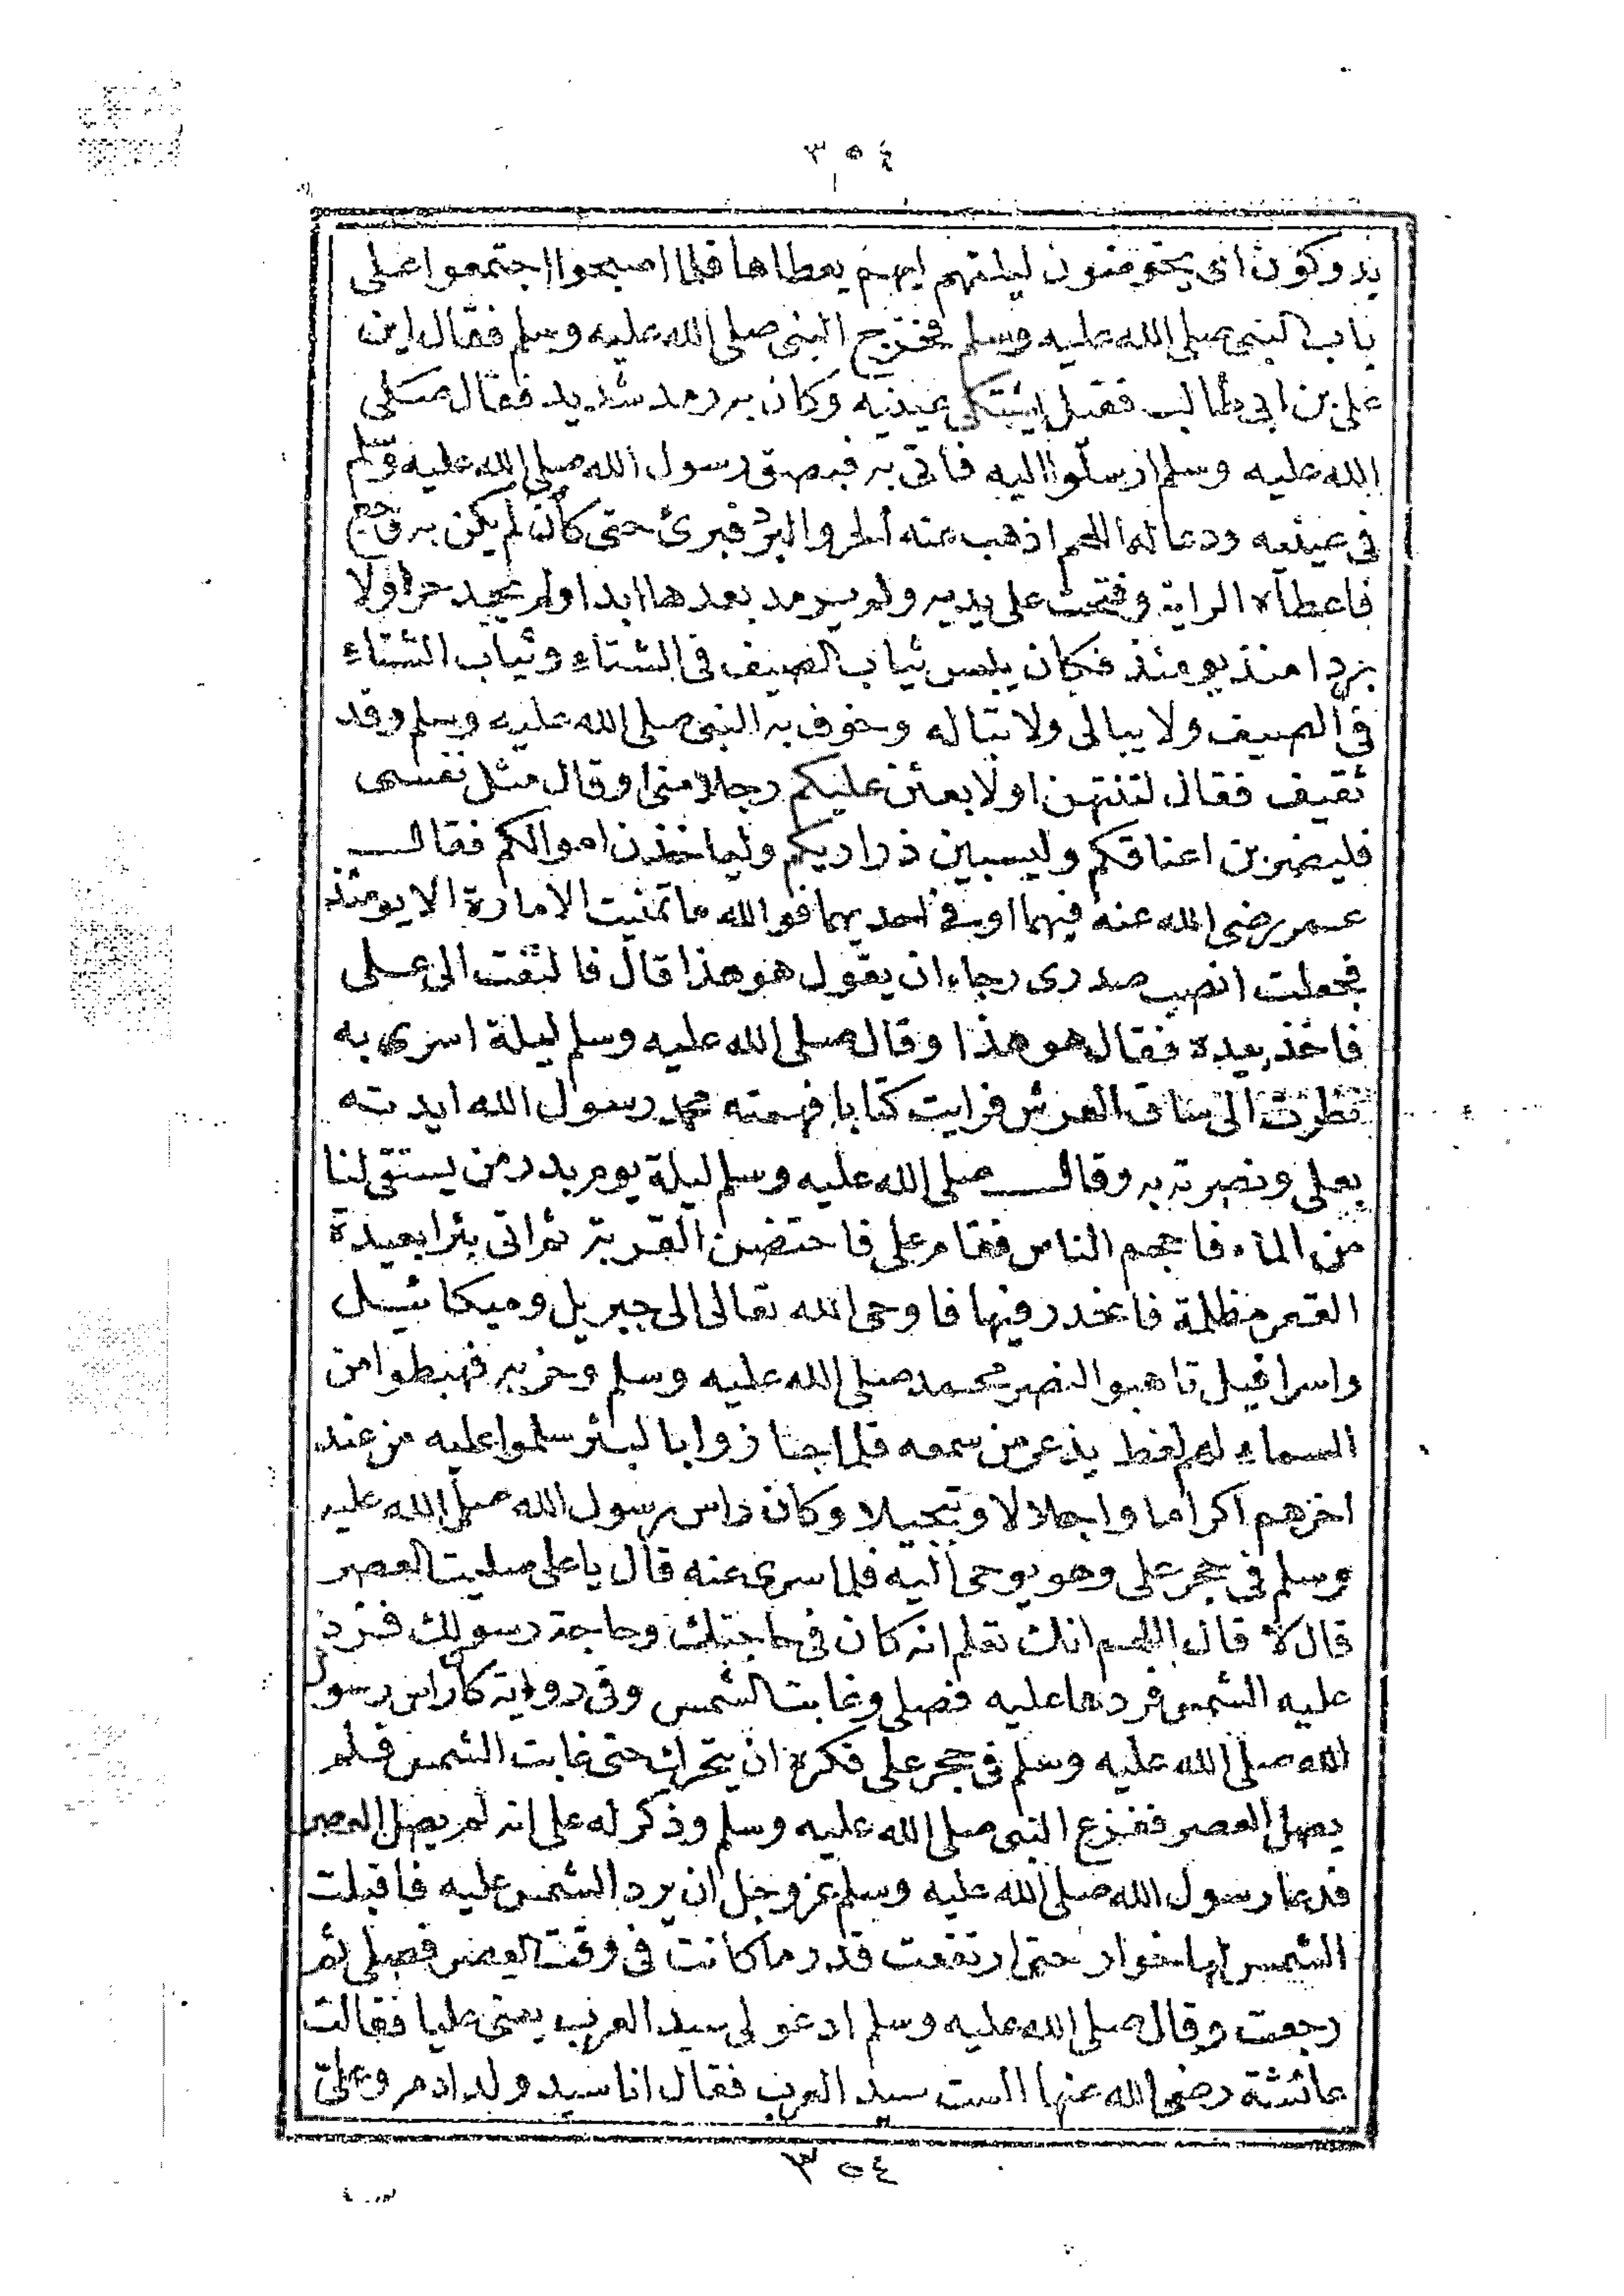 ٣٥٤
يدوكون اى يخوضون ليلتهم ايهم يعطاها فلما اصبحوا اجتمعوا على
باب النبى صلى الله عليه وسلم فخرج النبى صلى الله عليه وسلم فقال اين
على بن ابى طالب فقيل يشتكى عينيه وكان به رمد شديد فقال صلى
الله عليه وسلم ارسلوا اليه فاتى به فبصق رسول الله صلى الله عليه وسلم
فى عينيه ودعا له اللهم اذهب عنه الحر والبرد فبرئ حتى كأن لم يكن به وجع
فاعطاه الراية وفتحت على يديه ولم يرمد بعدها ابدا ولم يجد حرا ولا
بردا منذ يومئذ فكان يلبس ثياب الصيف فى الشتاء وثياب الشتاء
فى الصيف ولا يبالى ولا تباله وخوف به النبى صلى الله عليه وسلم وفد
ثقيف فقال لتنتهن او لابعثن عليكم رجلا منى او قال مثل نفسى
فليضربن اعناقكم وليسبين ذراريكم ولياخذن اموالكم فقال
عمر رضى الله عنه فيهما او فى احديهما فو الله ما تمنيت الامارة الا يومئذ
فجعلت انصب صدرى رجاء ان يقول هو هذا قال فالتفت الى على
فاخذ بيده فقال هو هذا وقال صلى الله عليه وسلم ليلة اسرى به
نظرت الى ساق العرش فرايت كتابا فهمته محمد رسول الله ايدته
بعلى ونصرته به وقال صلى الله عليه وسلم ليلة يوم بدر من يستقى لنا
من الماء فاحجم الناس فقام على فاحتضن القربة ثم اتى بئرا بعيدة
القعر مظلمة فانحدر فيها فاوحى الله تعالى الى جبريل وميكائيل
واسرافيل تاهبوا لنصر محمد صلى الله عليه وسلم وحزبه فهبطوا من
السماء لهم لغط يذعر من سمعه فلما جازوا بالبئر سلموا عليه من عند
اخرهم اكراما واجلالا وتبجيلا وكان راس رسول الله صلى الله عليه
وسلم فى حجر على وهو يوحى اليه فلما سرى عنه قال يا على صليت العصر
قال لا قال اللهم انك تعلم انه كان فى حاجتك وحاجة رسولك فرد
عليه الشمس فردها عليه فصلى وغابت الشمس وفى رواية كان راس رسول
الله صلى الله عليه وسلم فى حجر على فكره ان يتحرك حتى غابت الشمس فلم
يصل العصر ففزع النبى صلى الله عليه وسلم وذكر له على انه لم يصل العصر
فدعا رسول الله صلى الله عليه وسلم عز وجل ان يرد الشمس عليه فاقبلت
الشمس لها خوار حتى ارتفعت قدر ما كانت فى وقت العصر فصلى ثم
رجعت وقال صلى الله عليه وسلم ادعو لى سيد العرب يعنى عليا فقالت
عائشة رضى الله عنها الست سيد العرب فقال انا سيد ولد ادم وعلى
٣٥٤